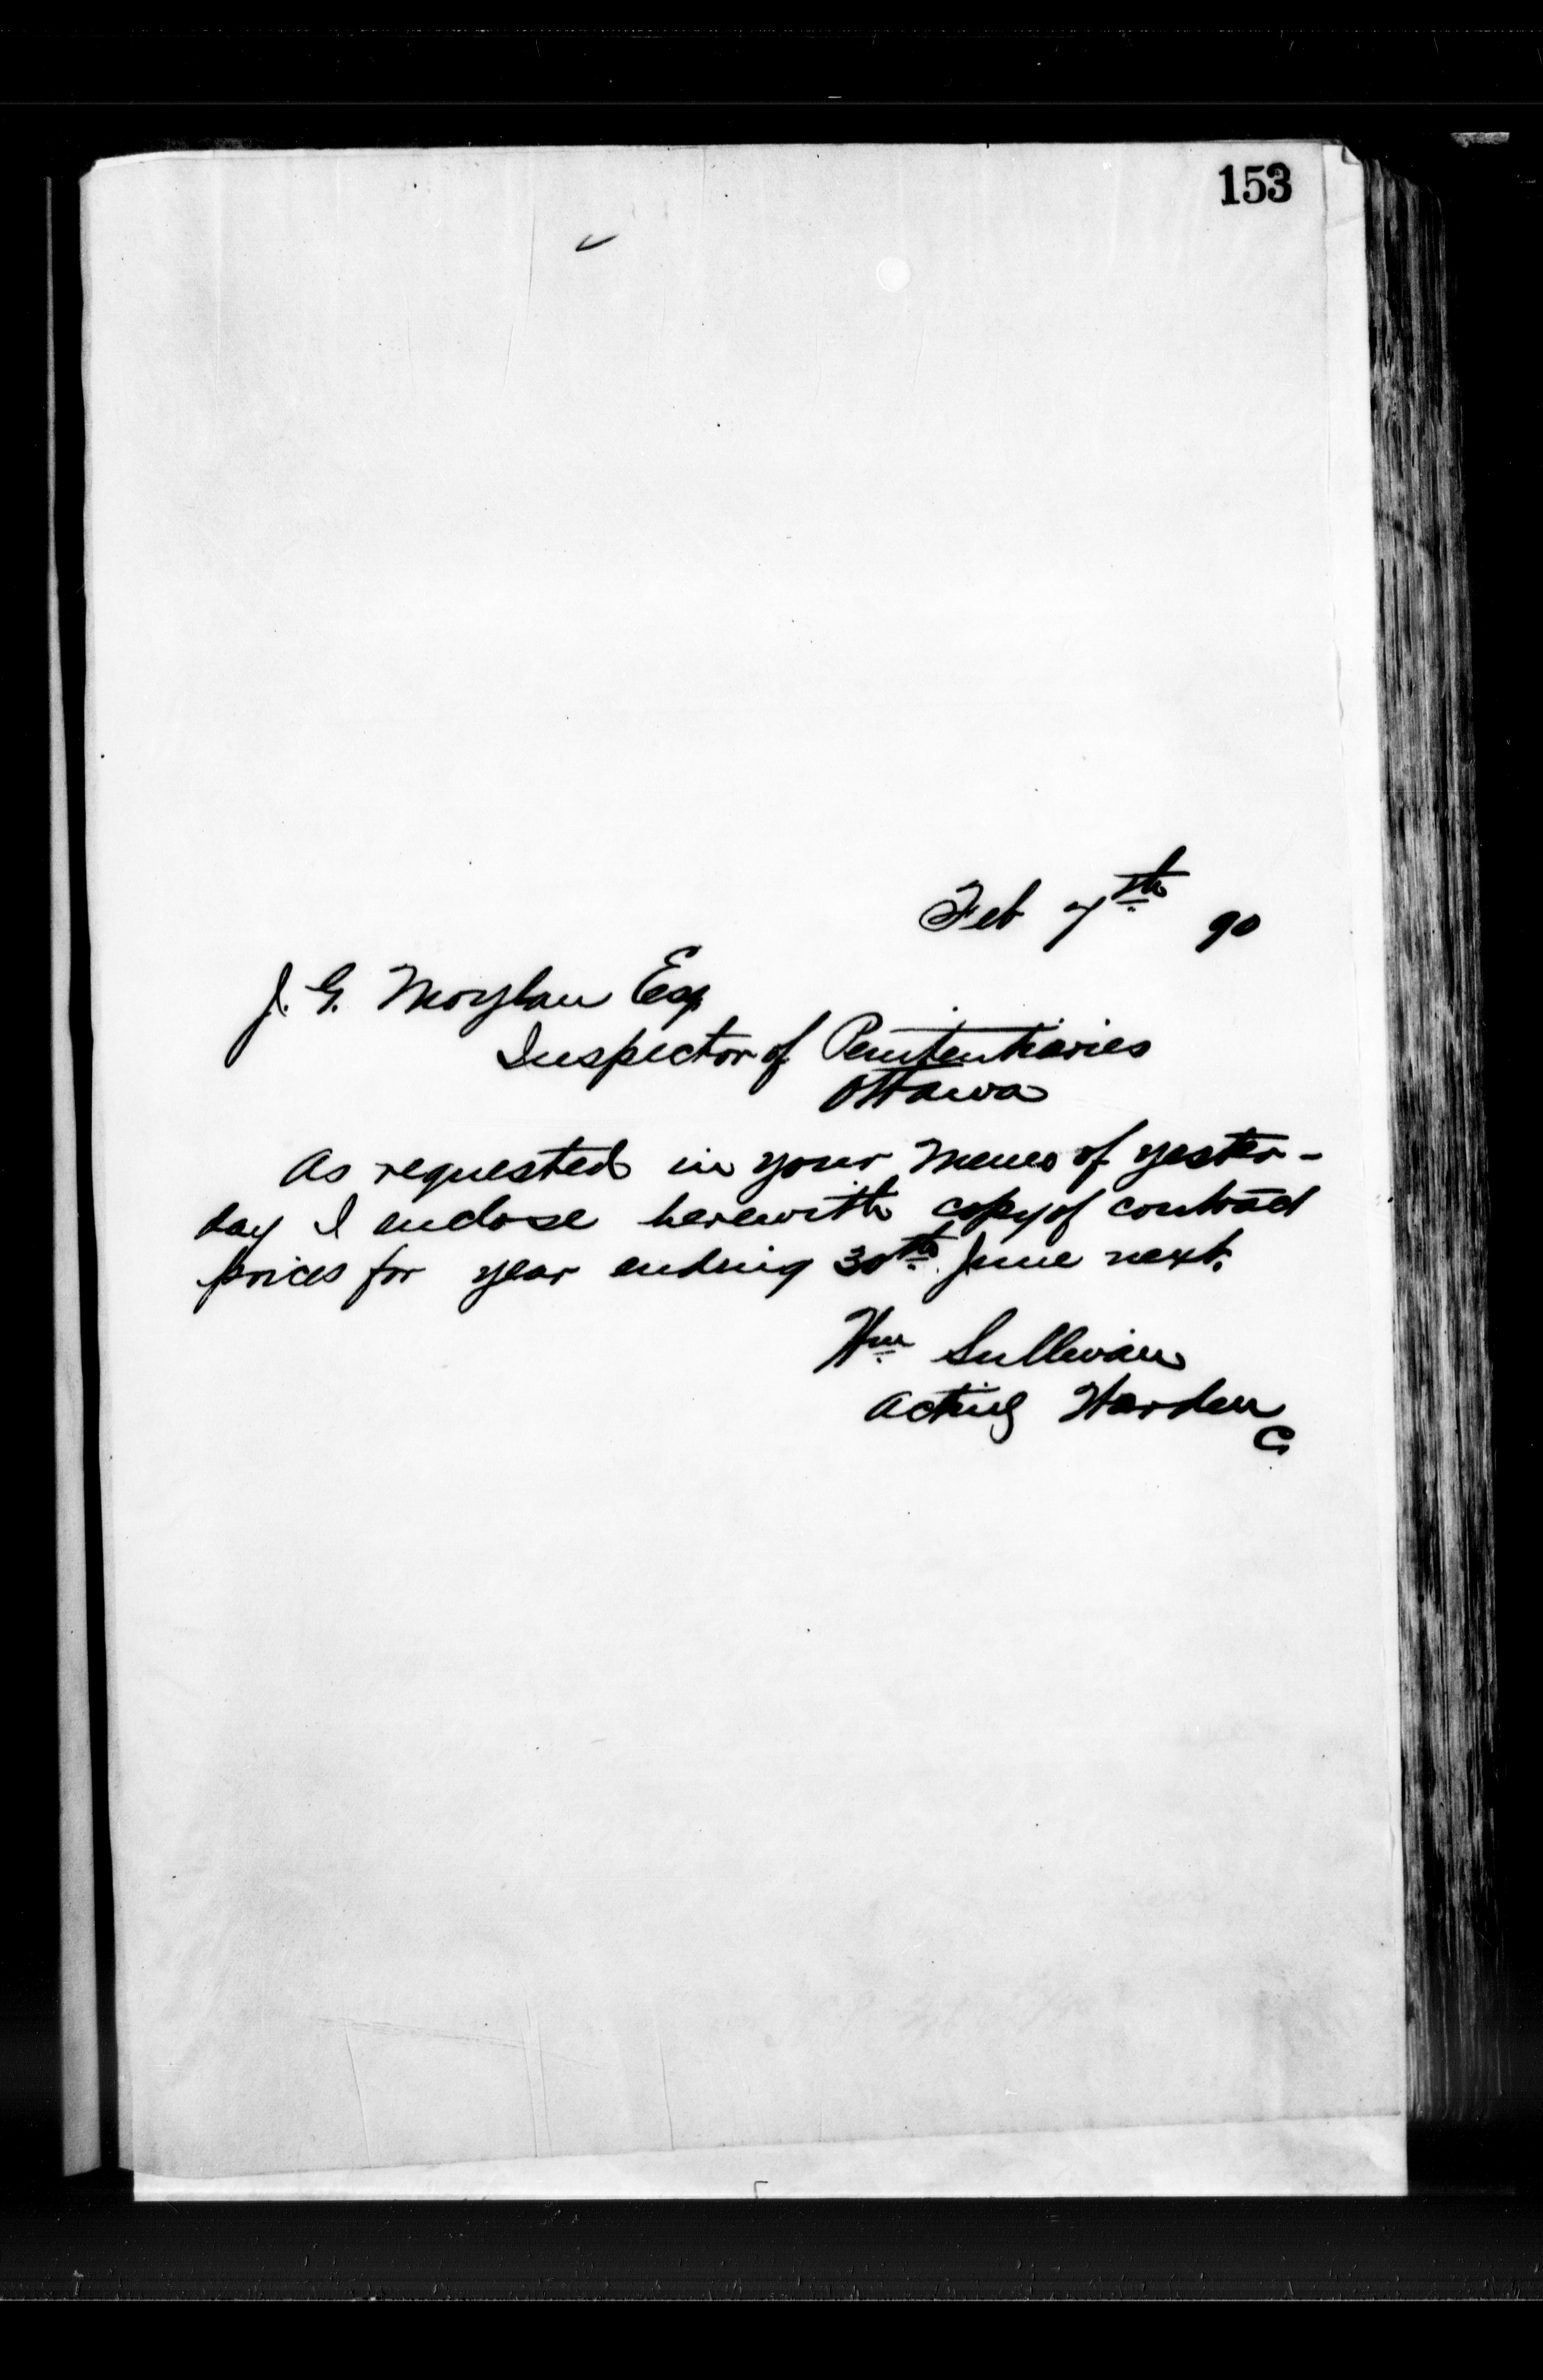 153
Feb 7th 90
J. G. Moylan Esq
Inspector of Penitentiaries
Ottawa
As requested in your Memo of yester-
day I enclose herewith copy of contract
prices for year ending 30th June next.
Wm Sullivan
Acting Warden
C